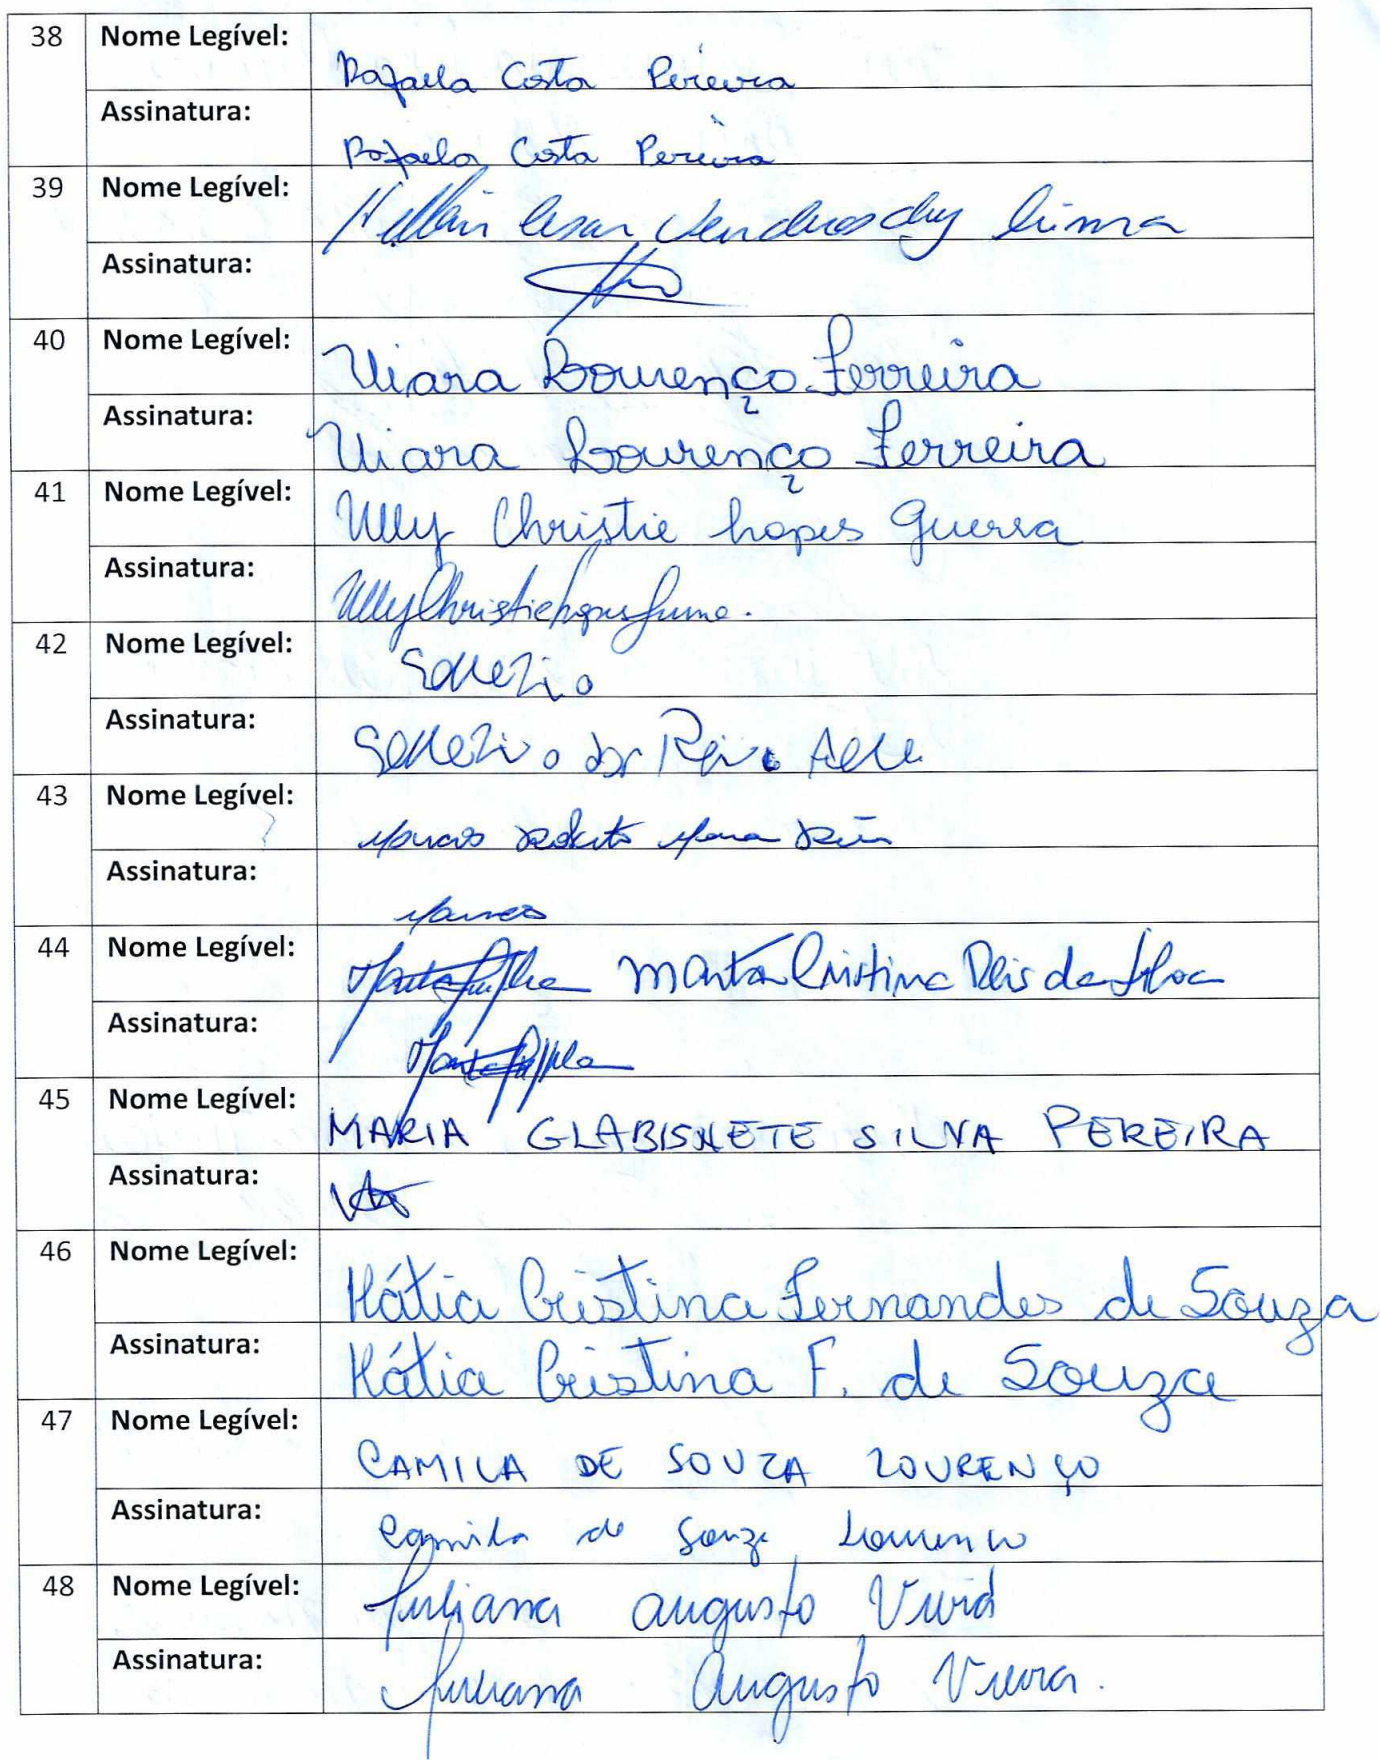 38 Nome Legível: Rafaela Costa Pereira
Assinatura: Rafaela Costa Pereira
39 Nome Legível: Cesar Lima
Assinatura:
40 Nome Legível: Uiara Lourenço Ferreira
Assinatura: Uiara Lourenço Ferreira
41 Nome Legível: Ully Christie Lopes Guerra
Assinatura: Ully Christie Lopes
42 Nome Legível:
Assinatura:
43 Nome Legível: Marcos Roberto
Assinatura: Marcos
44 Nome Legível: Marta Cristina Reis da Silva
Assinatura:
45 Nome Legível: MARIA GLABISNETE SILVA PEREIRA
Assinatura:
46 Nome Legível: Kátia Cristina Fernandes de Souza
Assinatura: Kátia Cristina F. de Souza
47 Nome Legível: CAMILA DE SOUZA LOURENÇO
Assinatura: Camila de Souza Lourenço
48 Nome Legível: Juliana Augusto
Assinatura: Juliana Augusto Vieira.